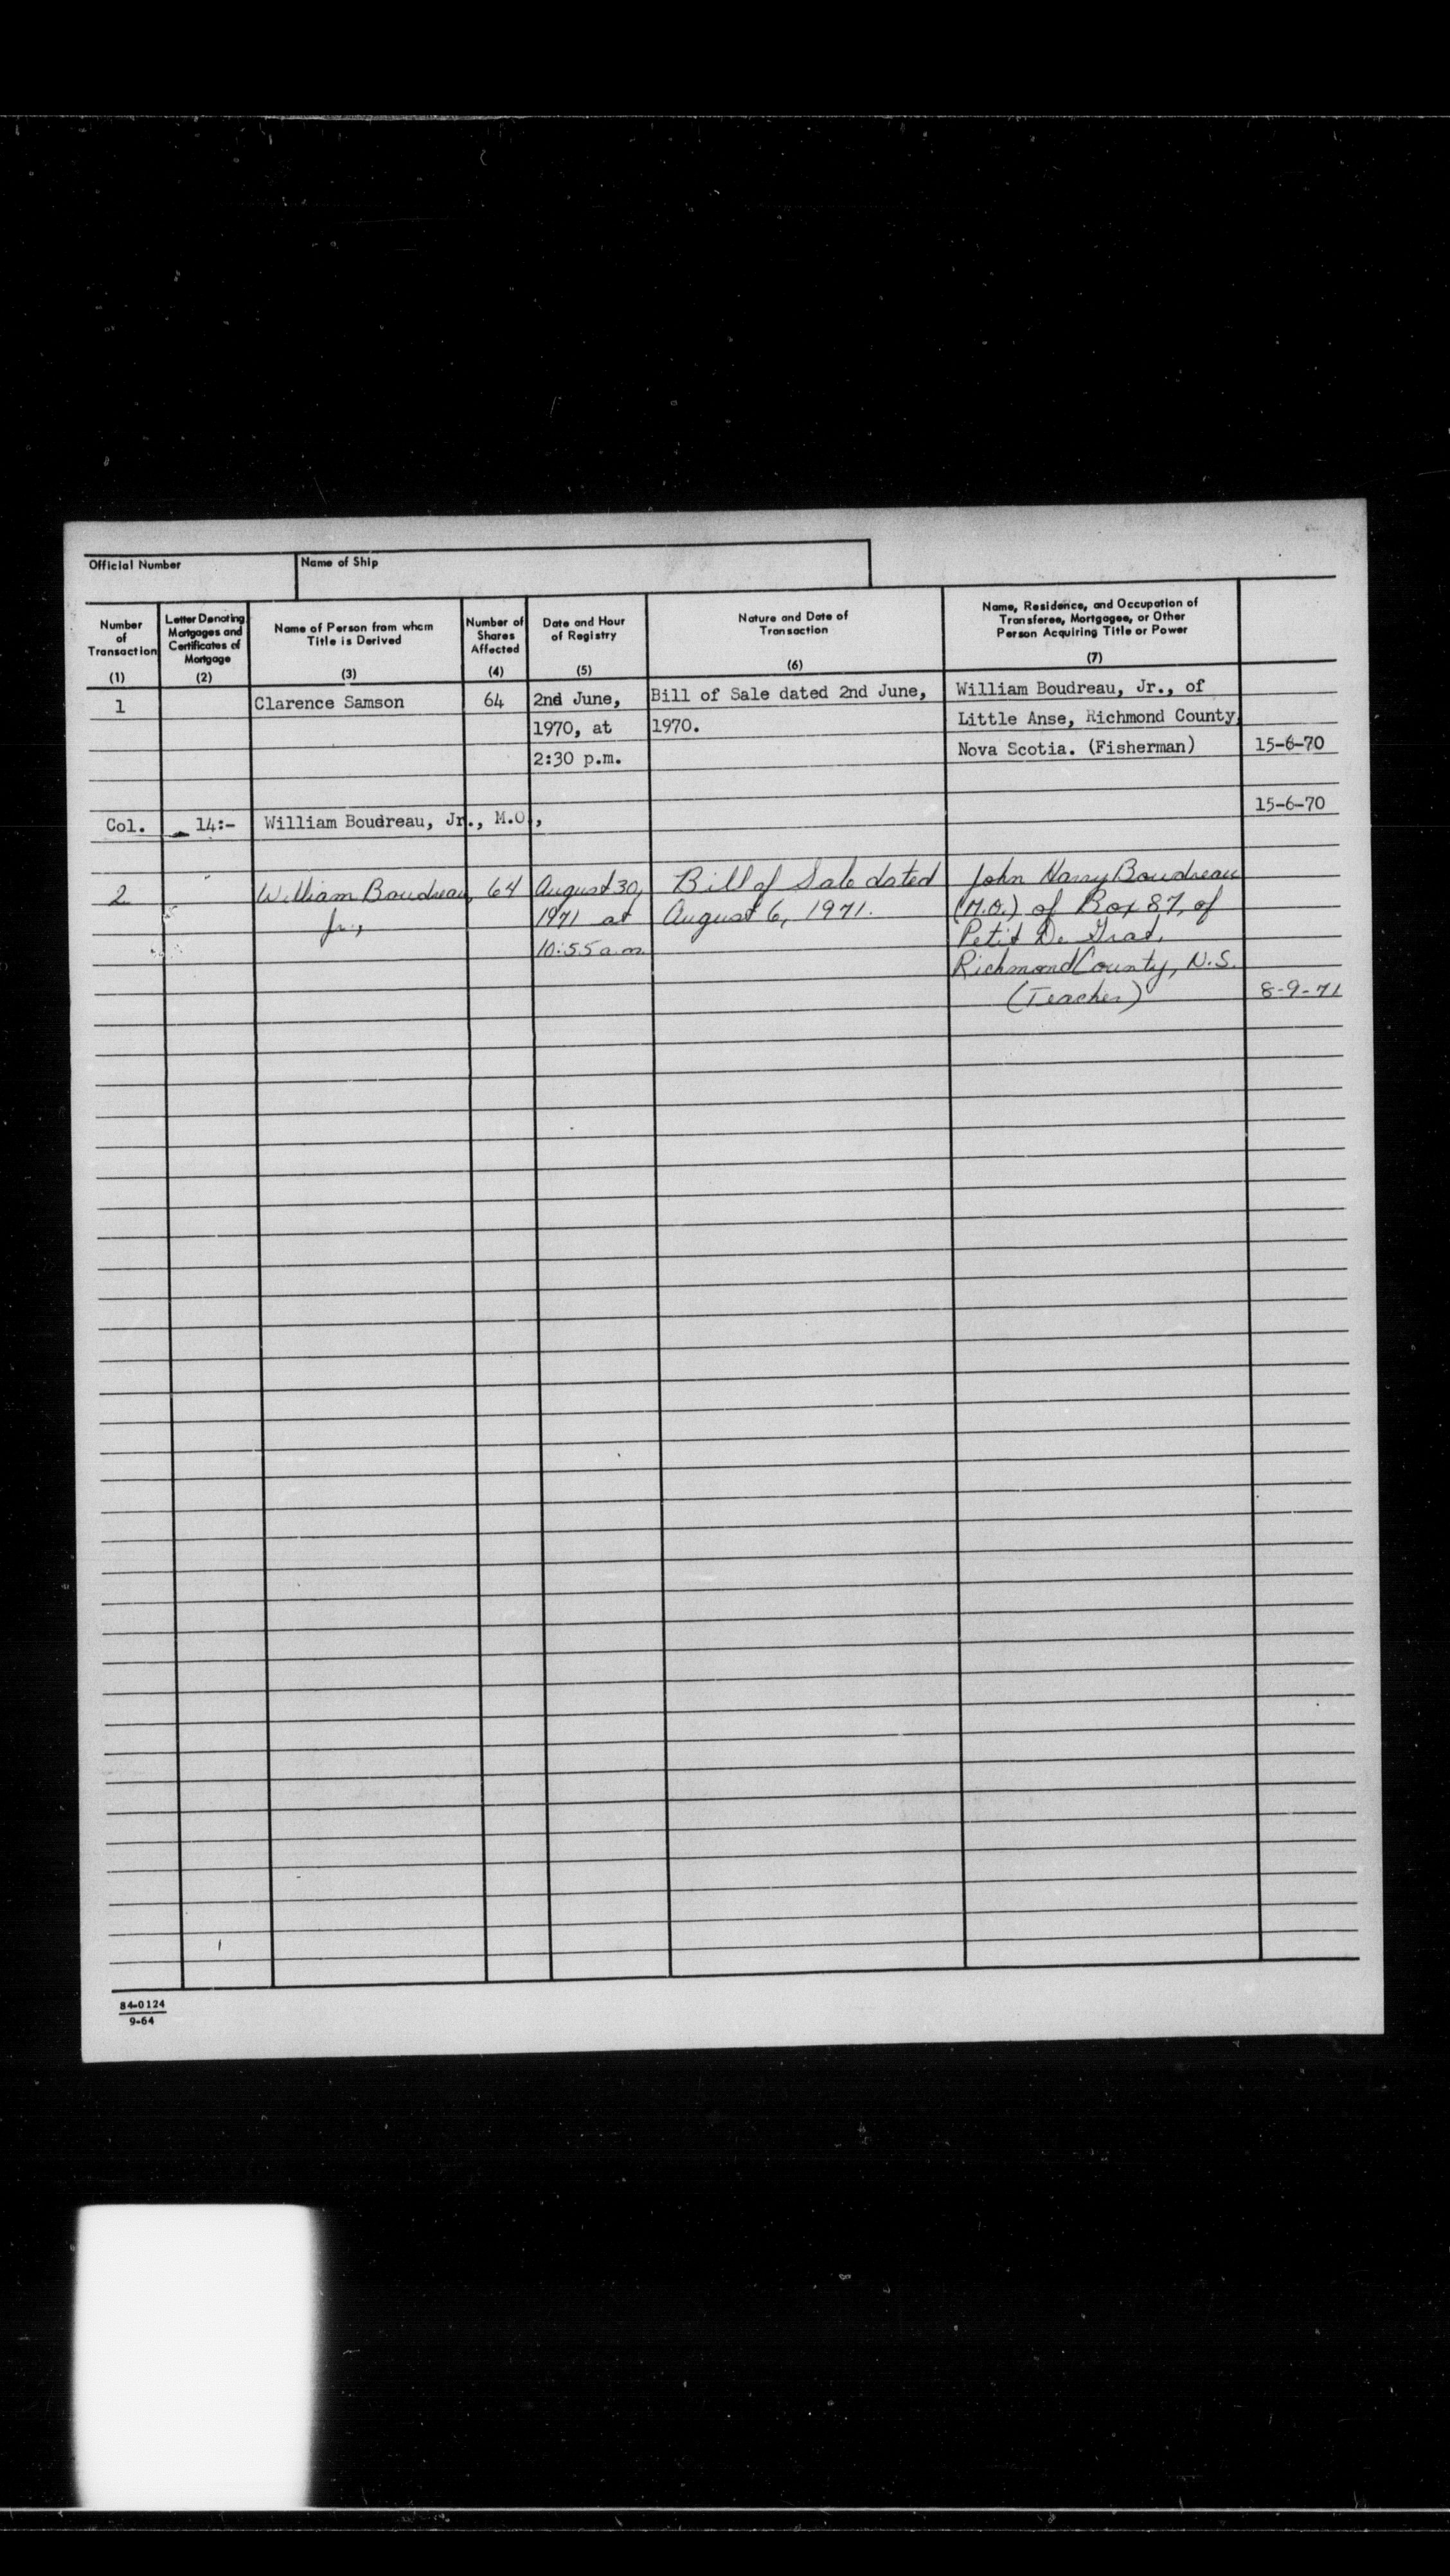 Official Number
Name of Ship
Number of Transaction (1)
Letter Denoting Mortgages and Certificates of Mortgage (2)
Name of Person from whom Title is Derived (3)
Number of Shares Affected (4)
Date and Hour of Registry (5)
Nature and Date of Transaction (6)
Name, Residence, and Occupation of Transferee, Mortgagee, or Other Person Acquiring Title or Power (7)
1 Clarence Samson 64 2nd June, Bill of Sale dated 2nd June, William Boudreau, Jr., of
1970, at 1970. Little Anse, Richmond County,
2:30 p.m. Nova Scotia. (Fisherman) 15-6-70
15-6-70
Col. 14:- William Boudreau, Jr., M.O.,
2 William Boudreau, 64 August 30, Bill of Sale dated John Harry Boudreau
Jr., 1971 at August 6, 1971. (M.O.) of Box 87, of
10:55 a.m. Petit De Grat,
Richmond County, N.S.
(Teacher) 8-9-71
84-0124
9-64